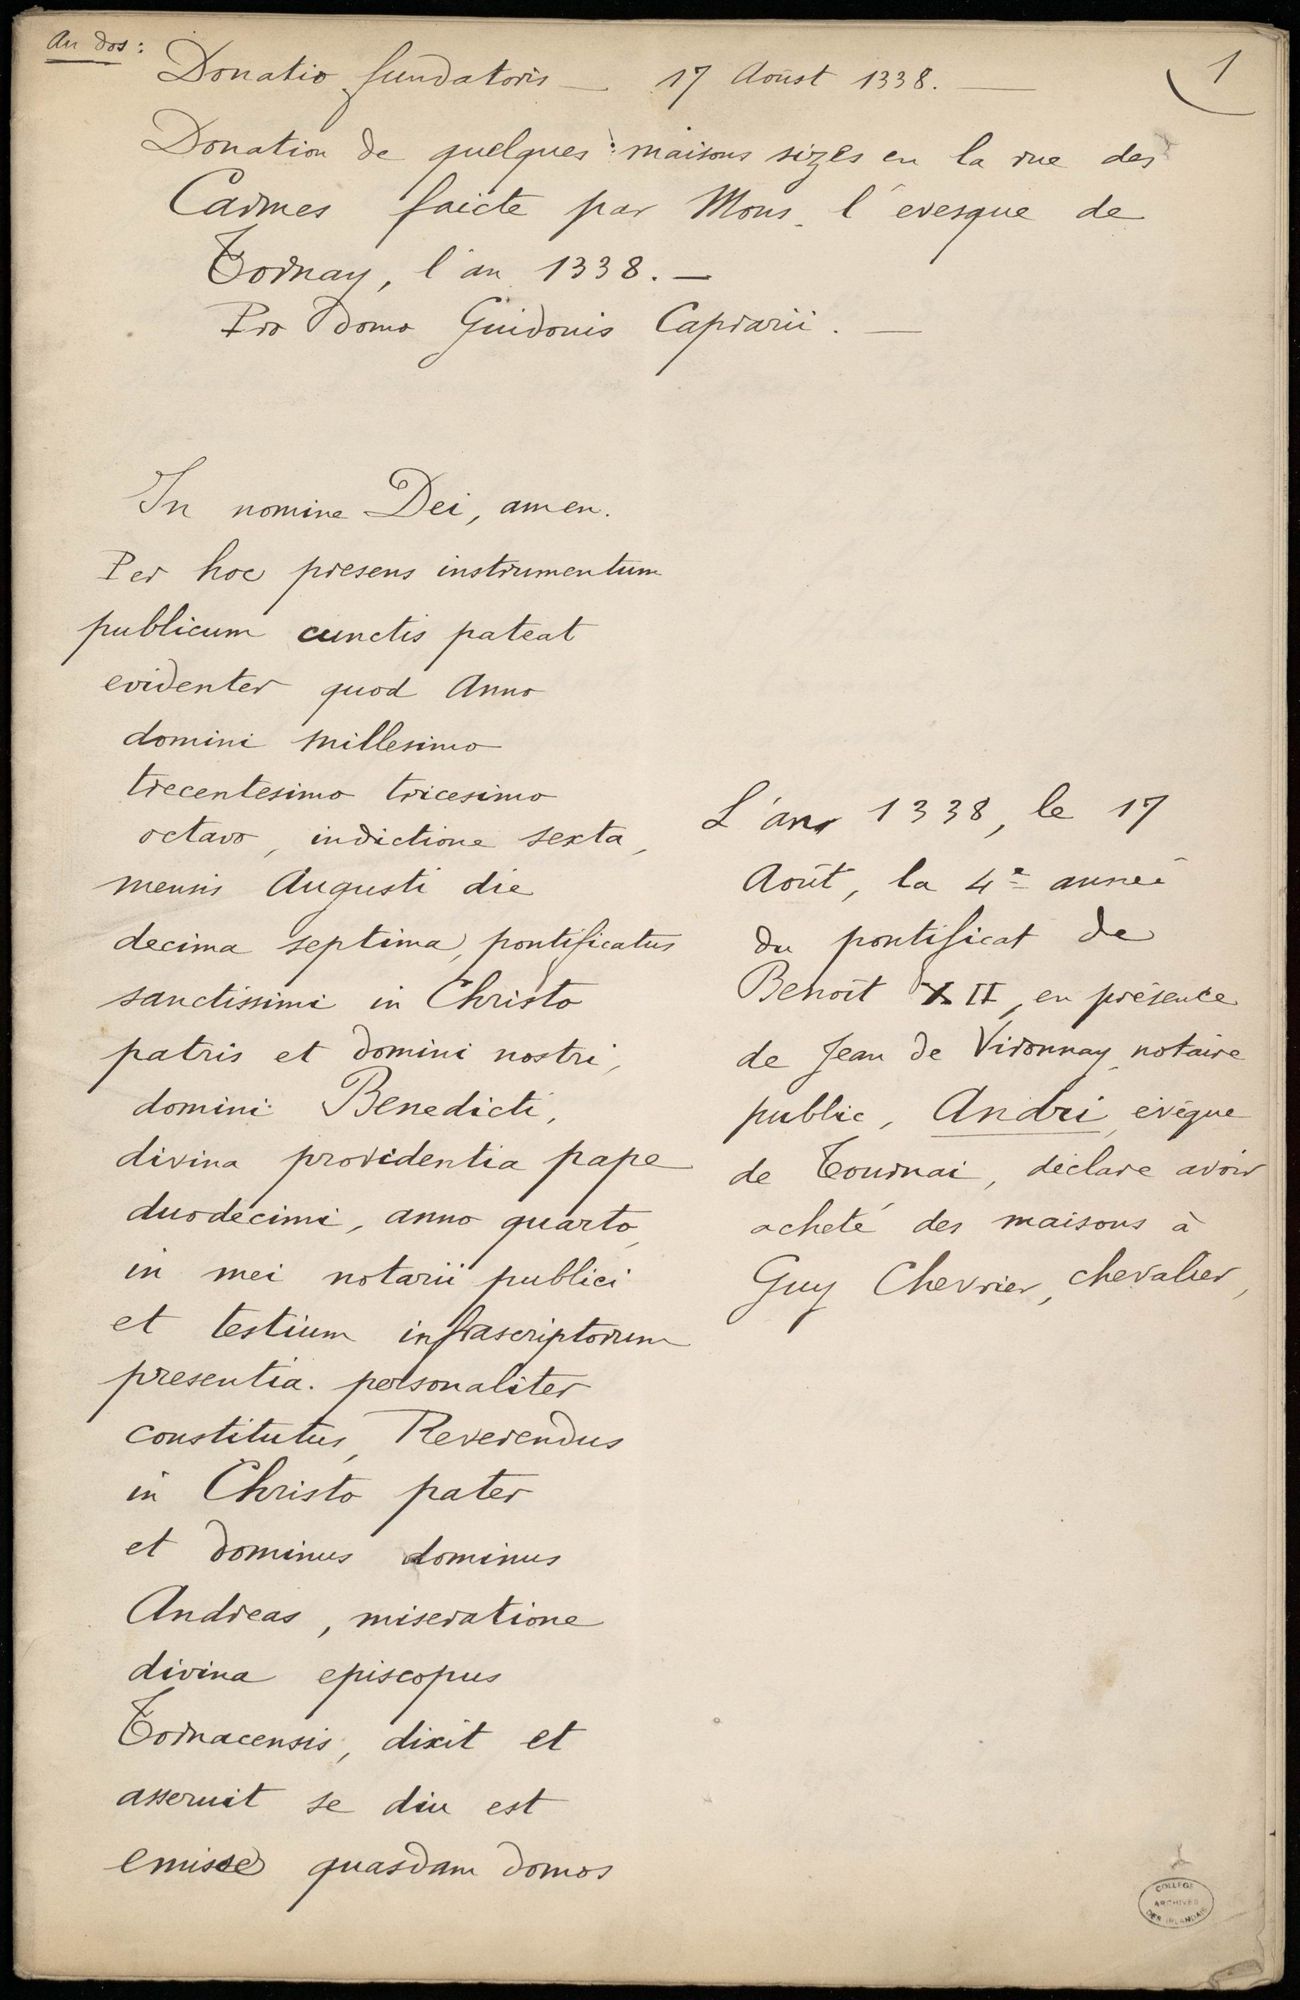 Au dos :
1
Donatio fundatoris — 17 Aoust 1338. —
Donation de quelques maisons sizes en la rue des
Carmes faicte par Mons. l'evesque de
Tornay, l'an 1338. —
Pro domo Guidonis Caprarii. —
In nomine Dei, amen.
Per hoc presens instrumentum
publicum cunctis pateat
evidenter quod Anno
domini millesimo
trecentesimo tricesimo
octavo, indictione sexta,
mensis Augusti die
decima septima, pontificatus
sanctissimi in Christo
patris et domini nostri,
domini Benedicti,
divina providentia pape
duodecimi, anno quarto,
in mei notarii publici
et testium infrascriptorum
presentia. personaliter
constitutus, Reverendus
in Christo pater
et dominus dominus
Andreas, miseratione
divina episcopus
Tornacensis, dixit et
asseruit se diu est
emisse quasdam domos
L'an 1338, le 17
Août, la 4e année
du pontificat de
Benoît XII, en présence
de Jean de Vironnay, notaire
public, André, évêque
de Tournai, déclare avoir
acheté des maisons à
Guy Chevrier, chevalier,
COLLEGE
ARCHIVES
DES IRLANDAIS